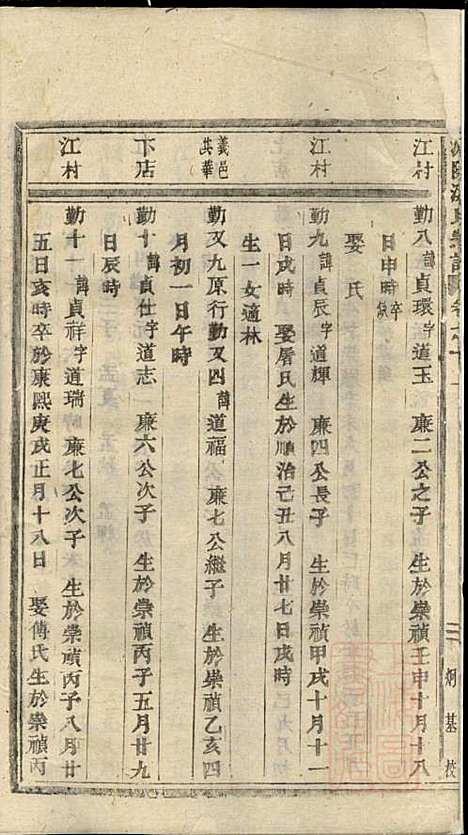 江村
勤八諱貞環字道玉　廉二公之子　生於崇禎壬申十月十八
日申時卒缺
娶氏
江村
勤九諱貞辰字道輝　廉四公長子　生於崇禎甲戌十月十一
日戌時　娶屠氏生於順治己丑八月廿七日戌時
生一女適林
義邑
洪華
勤又九原行勤又四諱道福　廉七公繼子　生於崇禎乙亥四
月初一日午時
下店
勤十諱貞仕字道志　廉六公次子　生於崇禎丙子五月廿九
日辰時
江村
勤十一諱貞祥字道瑞　廉七公次子　生於崇禎丙子八月廿
五日亥時卒於康熙庚戌正月十八日　娶傅氏生於崇禎丙
炯基校